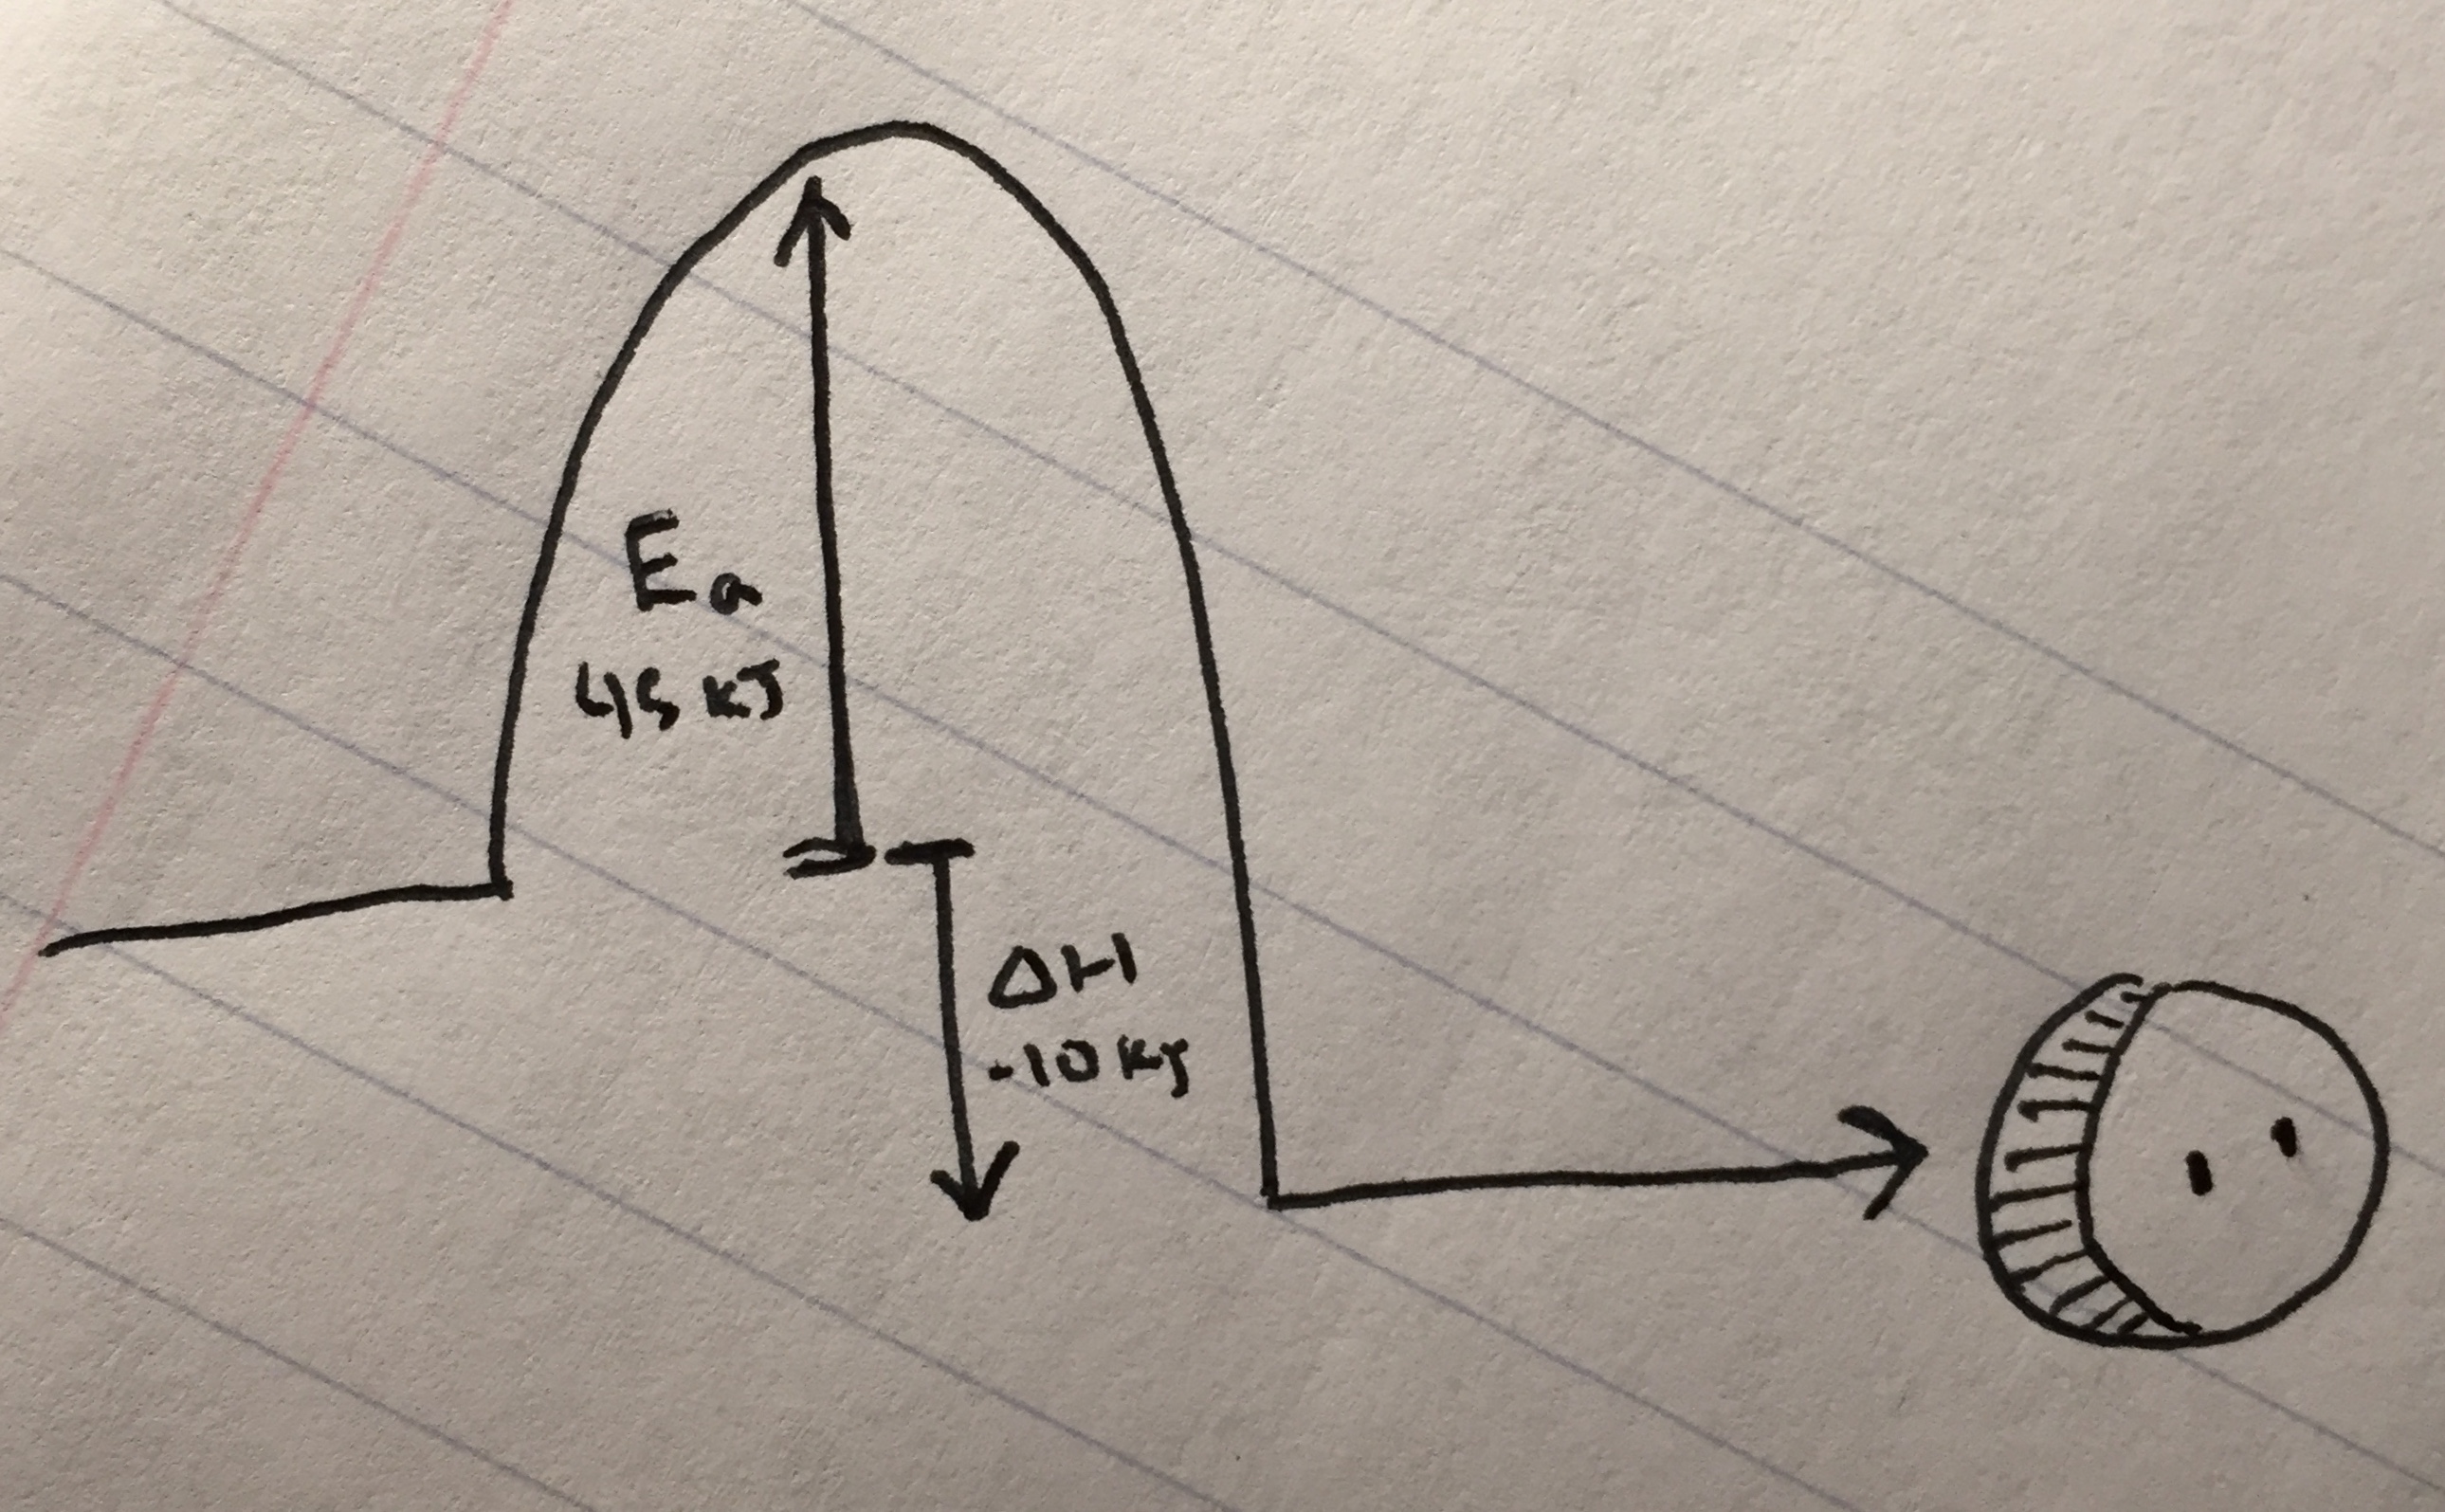 Ea
45 KJ
ΔH
-10 KJ